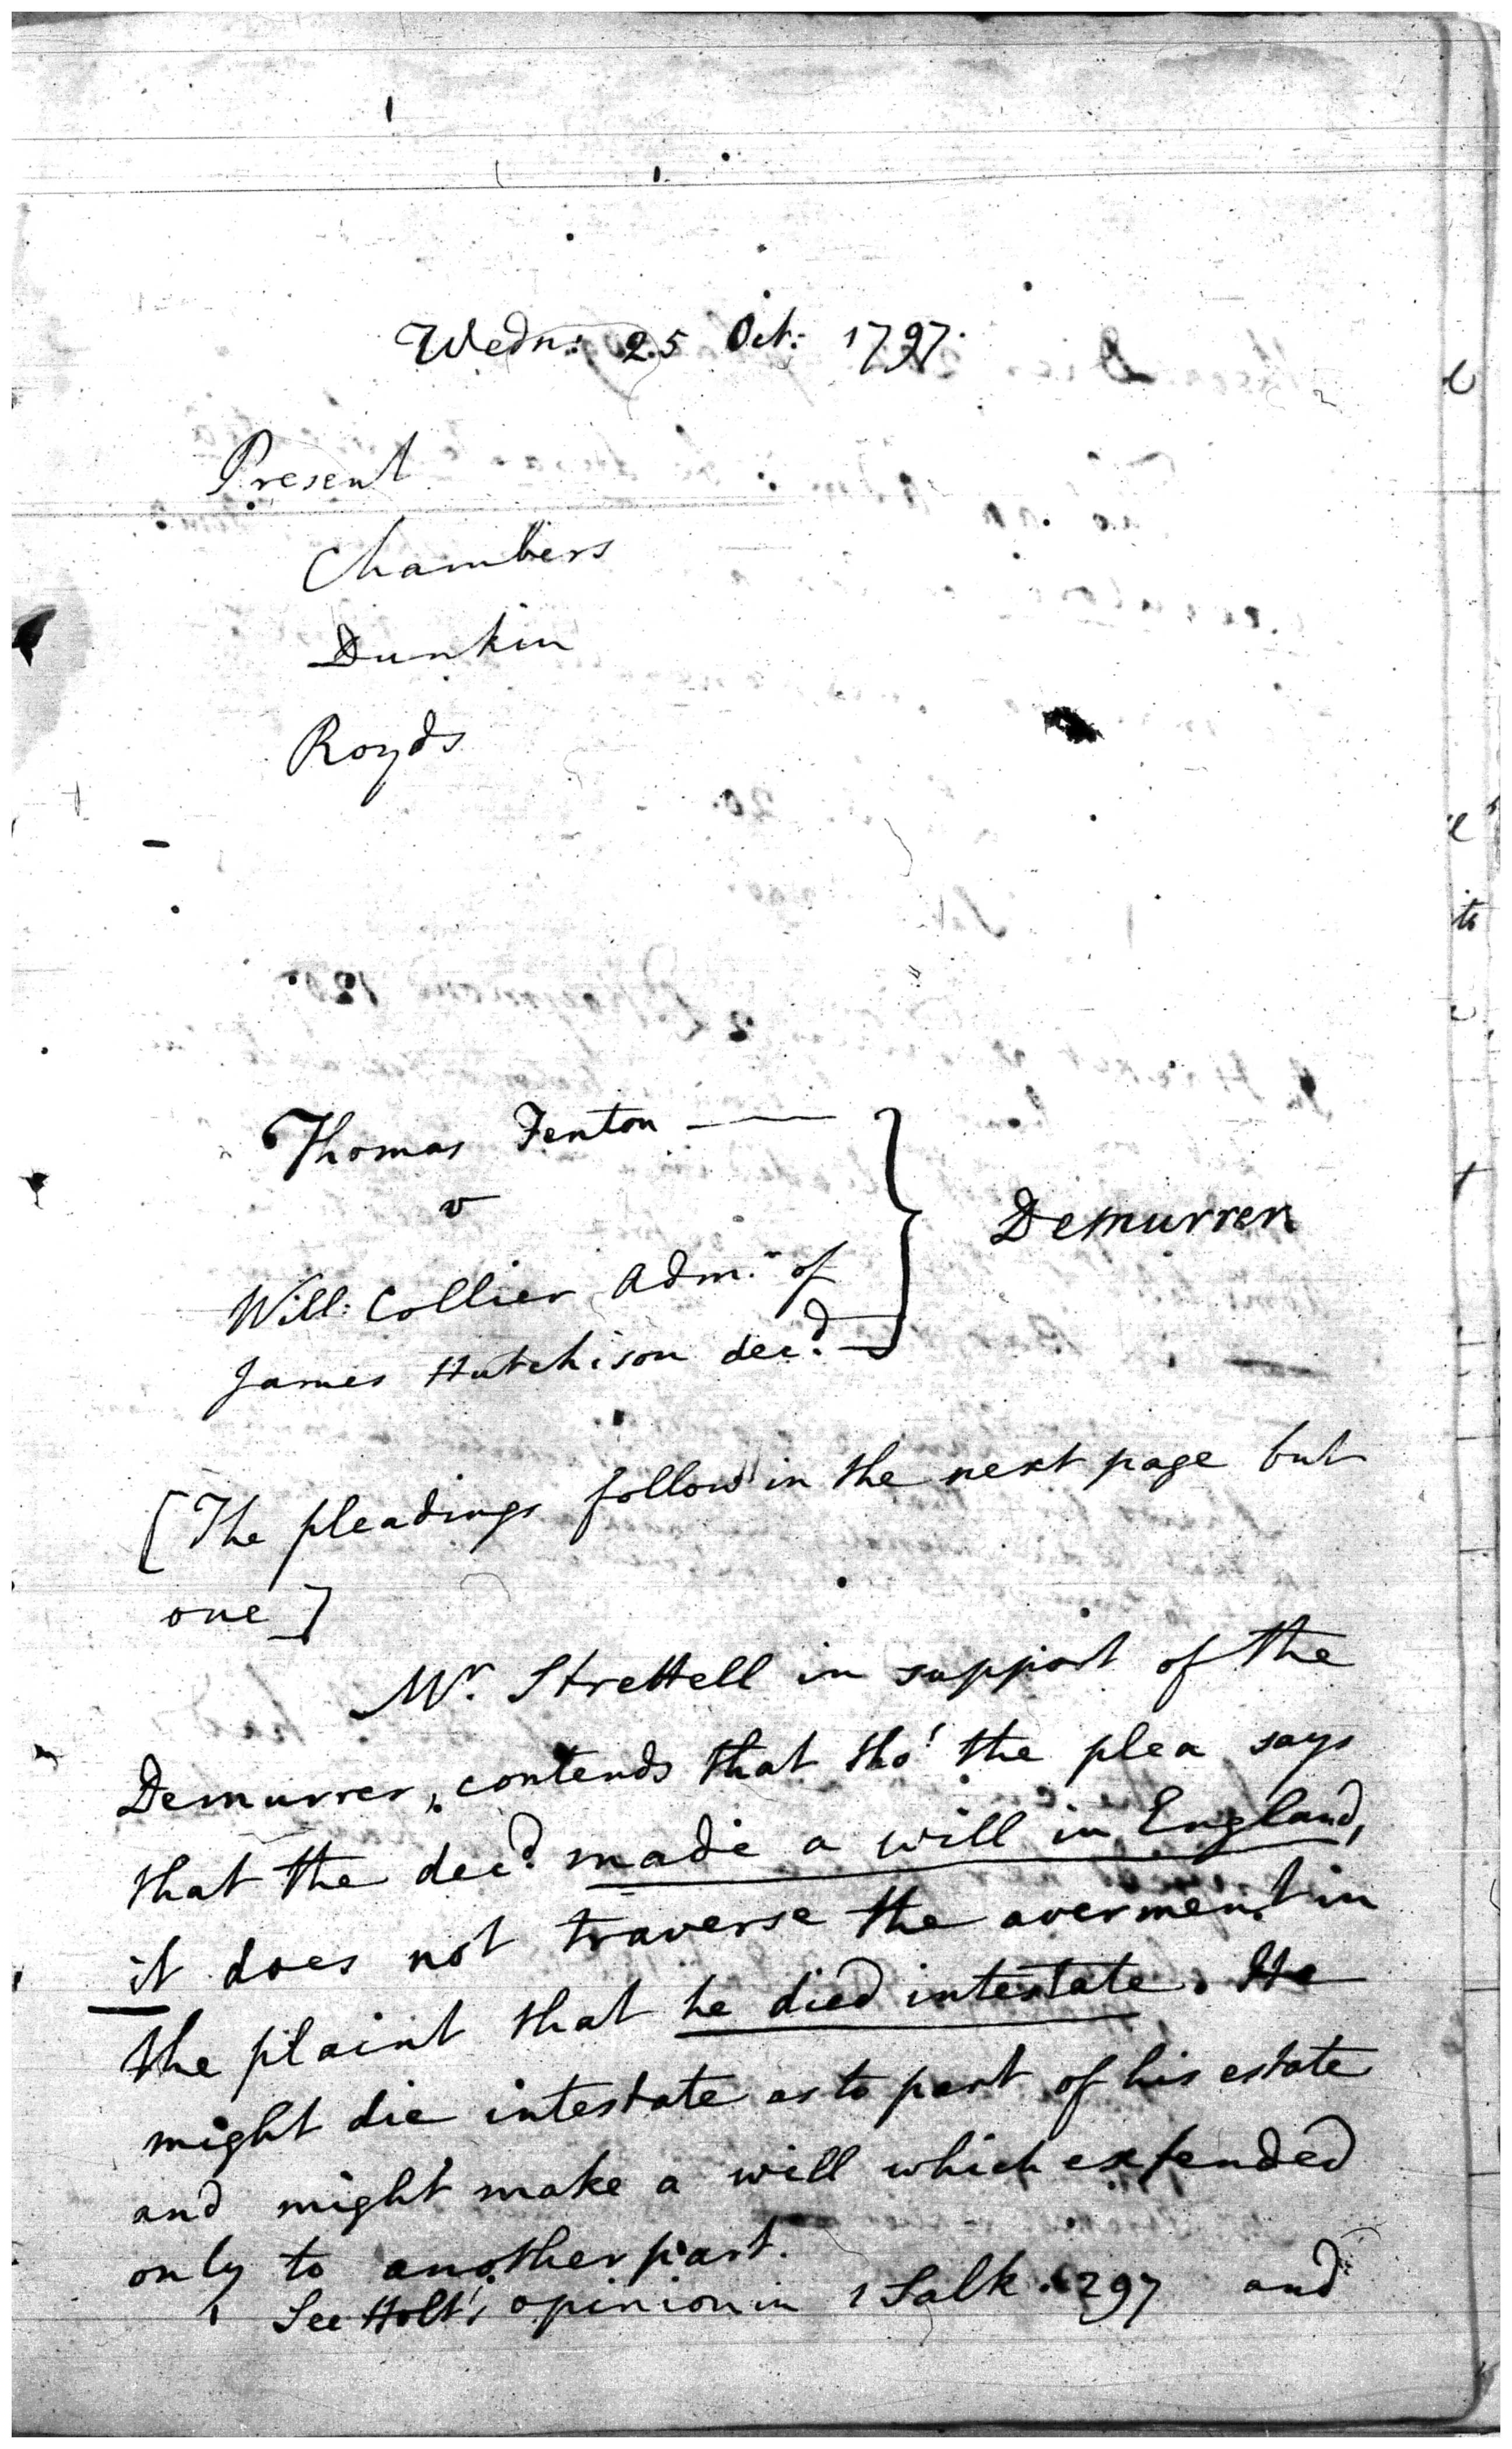 Wedn: 25 Oct: 1797.
Present
Chambers
Dunkin
Royds
Thomas Fenton —
v
Demurrer
Will: Collier Adm.r of
James Hutchison dec.d
[The pleadings follow in the next page but
one]
Mr. Strettell in support of the
Demurrer, contends that tho' the plea says
that the dec.d made a will in England,
it does not traverse the averment in
the plaint that he died intestate. He
might die intestate as to part of his estate
and might make a will which extended
only to another part.
See Holt's opinion in 1 Salk. 297 and